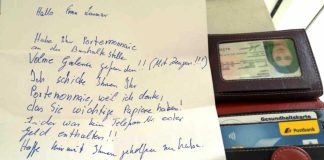 Hallo Frau
Habe Ihr Portemonnaie
an der Bushaltestelle
Volme Galerie gefunden!!! (Mit Zeugen!!!)
Ich schicke Ihnen Ihr
Portemonnaie, weil ich denke,
das Sie wichtige Papiere haben!
Leider war kein Telefon Nr. oder
Geld enthalten!!
Hoffe hiermit Ihnen geholfen zu haben.
Gesundheitskarte
Postbank